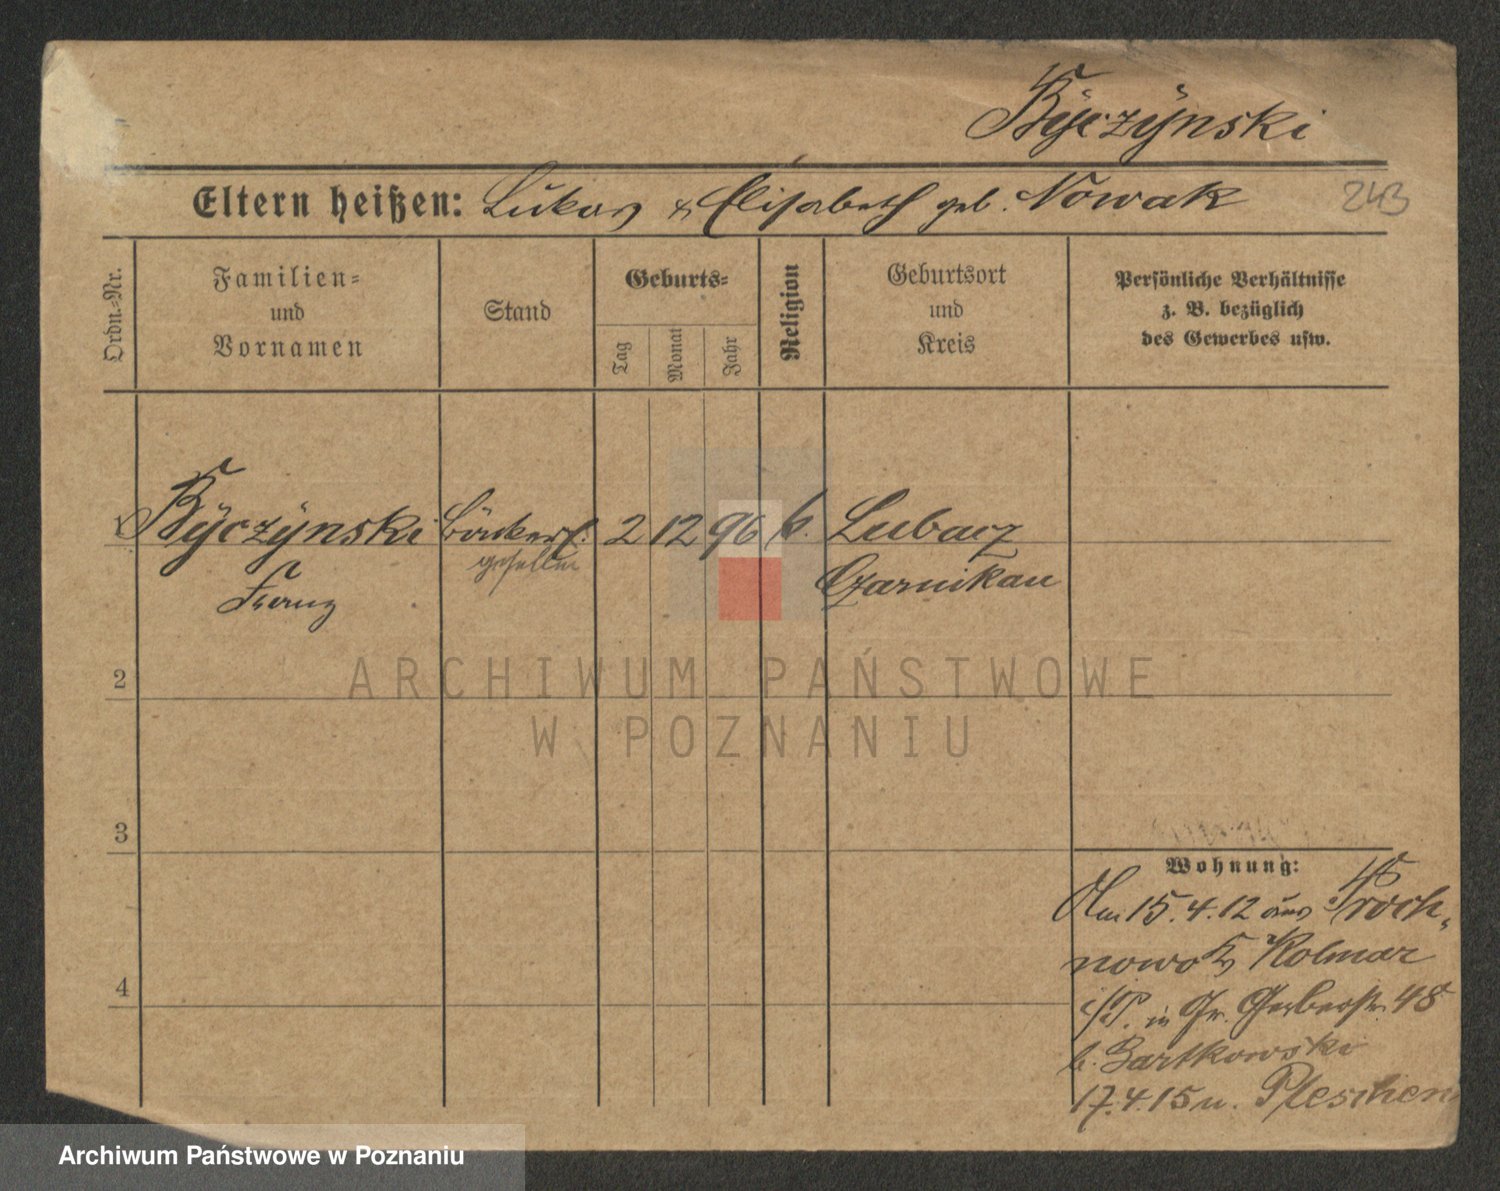 Byczynski
Eltern heißen: Lukas & Elisabeth geb. Nowak 243
Ordn.-Nr.
Familien-
und
Vornamen
Stand
Geburts-
Tag
Monat
Jahr
Religion
Geburtsort
und
Kreis
Persönliche Verhältnisse
z. B. bezüglich
des Gewerbes usw.
1 Byczynski Bäckerl. 2 12 96 k. Lubacz
gesellen
Franz Czarnikau
2
3
4
ARCHIWUM PAŃSTWOWE
W POZNANIU
Wohnung:
Am 15.4.12 aus Proch-
nowo Ks Kolmar
i/P. in Gr. Gerberstr. 48
b. Bartkowski
17.4.15 n. Pleschen
Archiwum Państwowe w Poznaniu